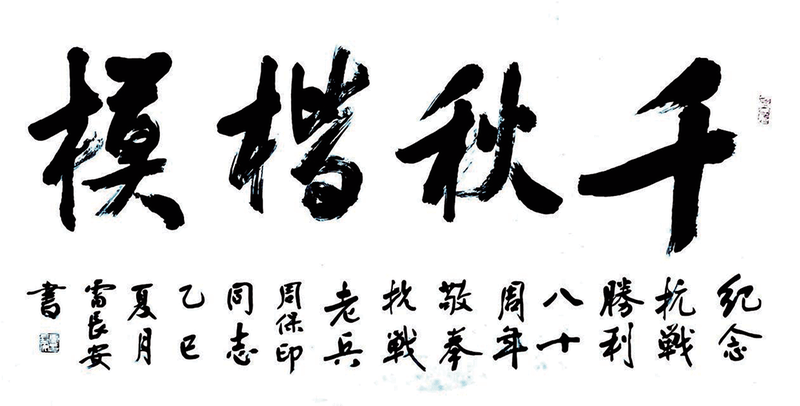 千秋楷模
紀念
抗戰
勝利
八十
周年
敬奉
抗戰
老兵
周保印
同志
乙巳
夏月
雷長安
書